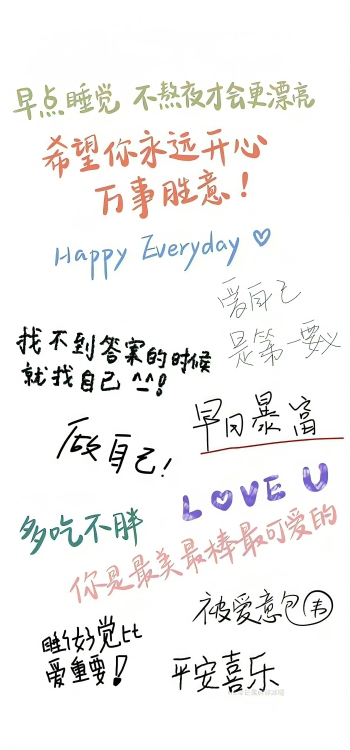 早点睡觉 不熬夜才会更漂亮
希望你永远开心
万事胜意！
Happy Everyday ♡
爱自己
是第一要义
找不到答案的时候
就找自己 ^_^!
做自己！
早日暴富
LOVE U
多吃不胖
你是最美最棒最可爱的
被爱意包围
睡好觉比
爱重要！
平安喜乐